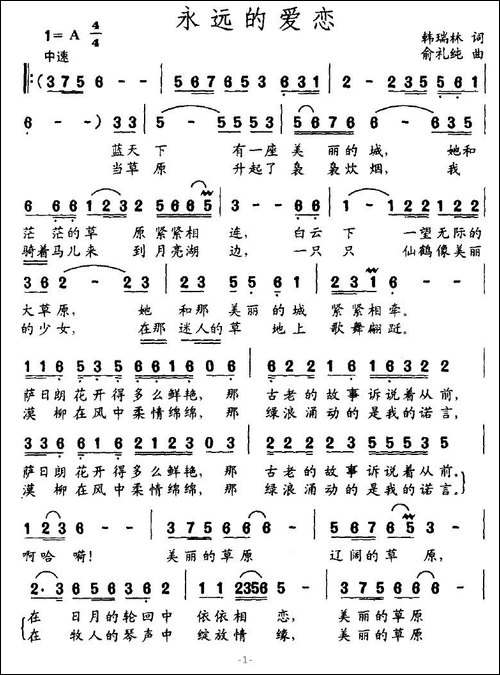 永远的爱恋
1=A 4/4
韩瑞林 词
中速
俞礼纯 曲
‖:(3 7 5 6 - | 5 6 7 6 5 3 6 3 1 | 2 - 2 3 5 5 6 1 |
6 - -) 3 3 | 5 - 5 5 5 3 | 6 - 6 6 3 1 | 2 - - 3 3 |
蓝天下 有一座美丽的城, 她和
当草原 升起了袅袅炊烟, 我
6 6 6 1 2 3 | 2 2 5 6 6 5 | 3 - - 6 6 | 1 - 1 2 2 1 2 2 |
茫茫的草原紧紧相连, 白云下 一望无际的
骑着马儿来到月亮湖边, 一只只 仙鹤像美丽
3 6 2 - 2 3 | 5 2 3 5 3 5 | 2 - 2 3 1 | 6 - - - |
大草原, 她和那美丽的城紧紧相牵。
的少女, 在那迷人的草地上歌舞翩跹。
1 1 6 5 3 5 | 6 6 1 6 0 6 | 1 6 1 6 1 2 | 1 6 3 2 2 |
萨日朗花开得多么鲜艳, 那古老的故事诉说着从前,
漠柳在风中柔情绵绵, 那绿浪涌动的是我的诺言。
3 3 6 6 1 6 | 2 1 2 3 0 3 | 6 2 2 2 2 3 | 5 5 5 3 5 |
萨日朗花开得多么鲜艳, 那古老的故事诉说着从前。
漠柳在风中柔情绵绵, 那绿浪涌动的是我的诺言。
1 2 3 6 - - | 3 7 5 6 6 6 | 6 - - - | 5 6 7 6 6 5 | 3 - - - |
啊哈嗬! 美丽的草原 辽阔的草原,
2·3 6 5 6 3 6 2 | 1 1 2 3 5 6 | 5 - - - | 3 7 5 6 6 6 | 6 - - - |
在日月的轮回中依依相恋, 美丽的草原
在牧人的琴声中绽放情缘, 美丽的草原
-1-